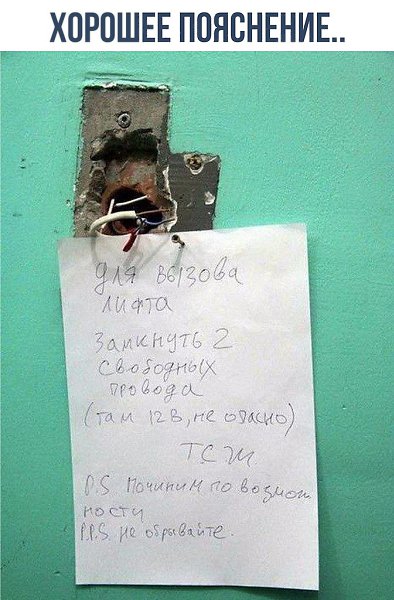 ХОРОШЕЕ ПОЯСНЕНИЕ..
для вызова
лифта
Замкнуть 2
свободных
провода
(там 12В, не опасно)
ТСЖ.
P.S Починим по возмож
ности
P.P.S не обрывайте.